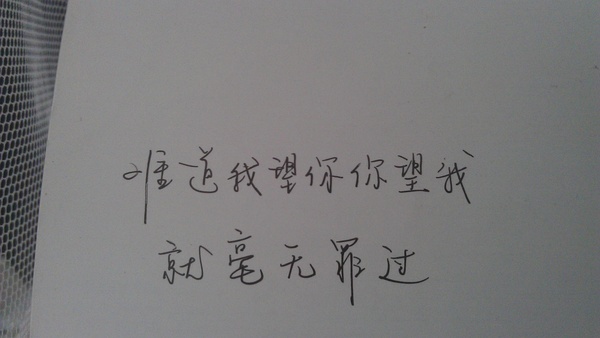 难道我望你你望我
就毫无罪过